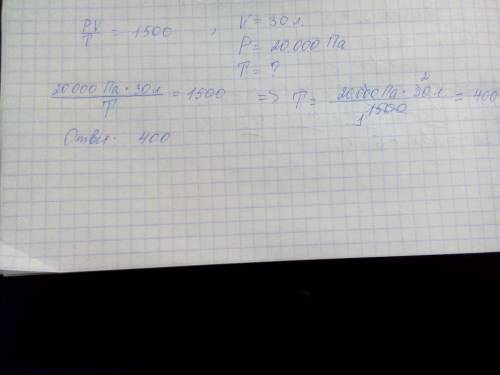 PV/T = 1500 , V = 30 л.
P = 20.000 Па
T = ?
20 000 Па · 30 л / T = 1500 => T = 20.000 Па · 30 л / 1500 = 400
Ответ: 400